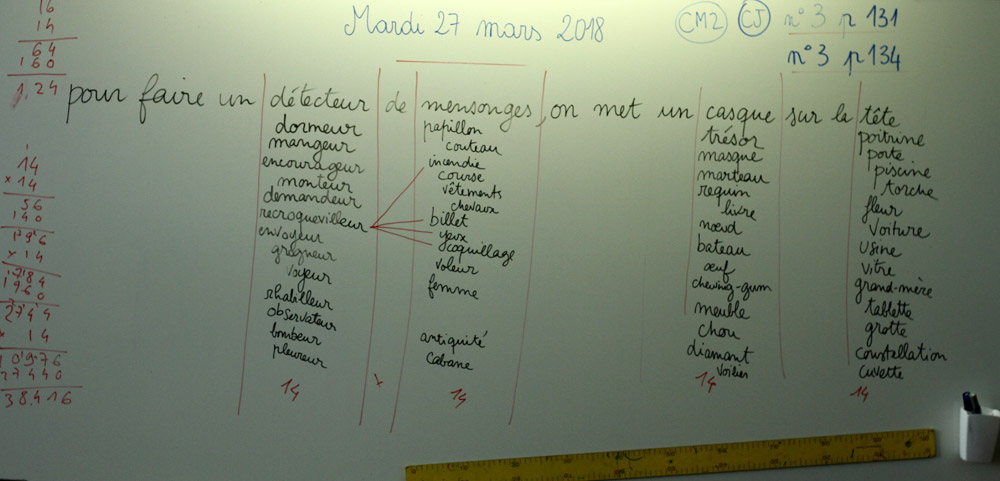 Mardi 27 mars 2018
CM2 CJ n°3 p 131
n°3 p 134
16
14
64
160
1,24
pour faire un détecteur de mensonges, on met un casque sur la tête
dormeur
mangeur
encourageur
monteur
demandeur
recroquevilleur
envoyeur
grogneur
voyeur
rhabilleur
observateur
bombeur
pleureur
14
x
papillon
couteau
incendie
course
vêtements
chevaux
billet
yeux
coquillage
voleur
femme
antiquité
cabane
14
trésor
masque
marteau
requin
livre
nœud
bateau
œuf
chewing-gum
meuble
chou
diamant
voilier
14
poitrine
porte
piscine
torche
fleur
voiture
usine
vitre
grand-mère
tablette
grotte
constellation
cuvette
14
14
x 14
56
140
196
x 14
784
1960
2744
x 14
10976
27440
38416